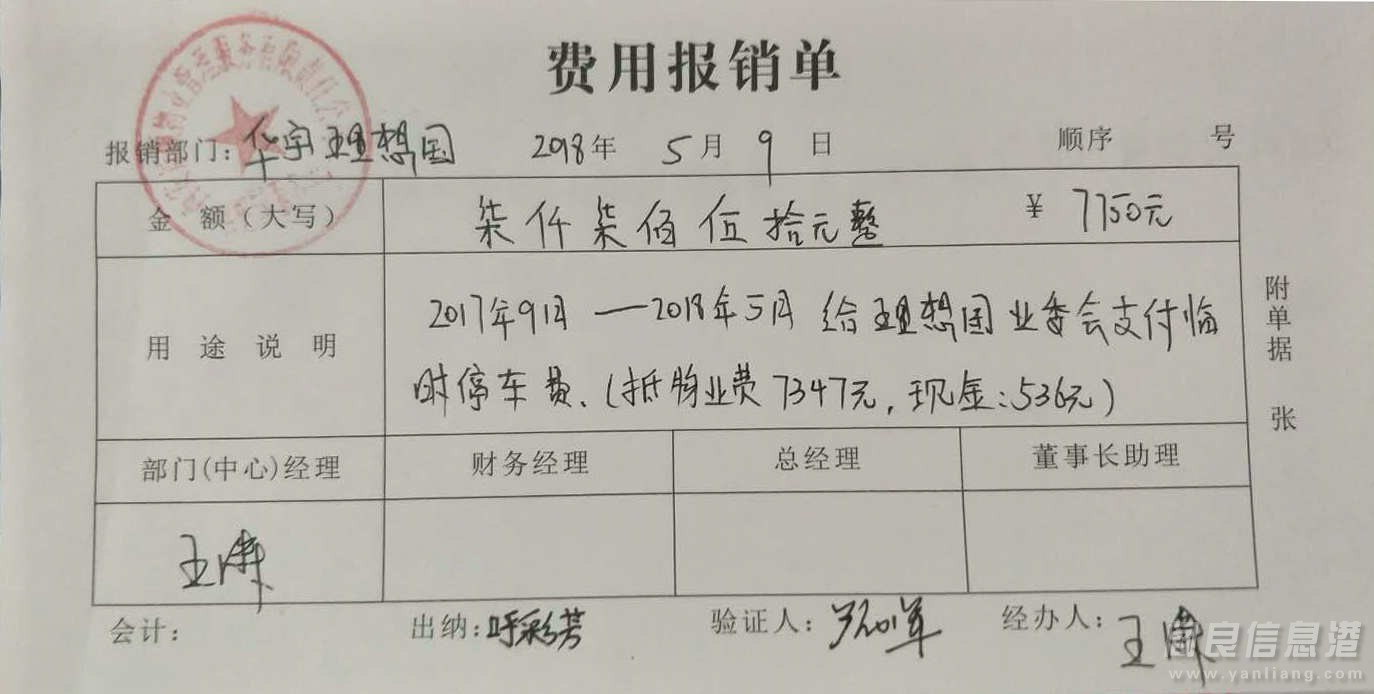 费用报销单
报销部门：华宇理想国 2018年 5月 9日 顺序 号
金 额（大写） 柒仟柒佰伍拾元整 ￥ 7750元
用 途 说 明 2017年9月—2018年5月 给理想国业委会支付临
时停车费、（抵物业费7347元，现金：536元）
附单据 张
部门(中心)经理 财务经理 总经理 董事长助理
王
会计： 出纳：呼彩芳 验证人： 经办人：王
良信息港
www.yanliang.com